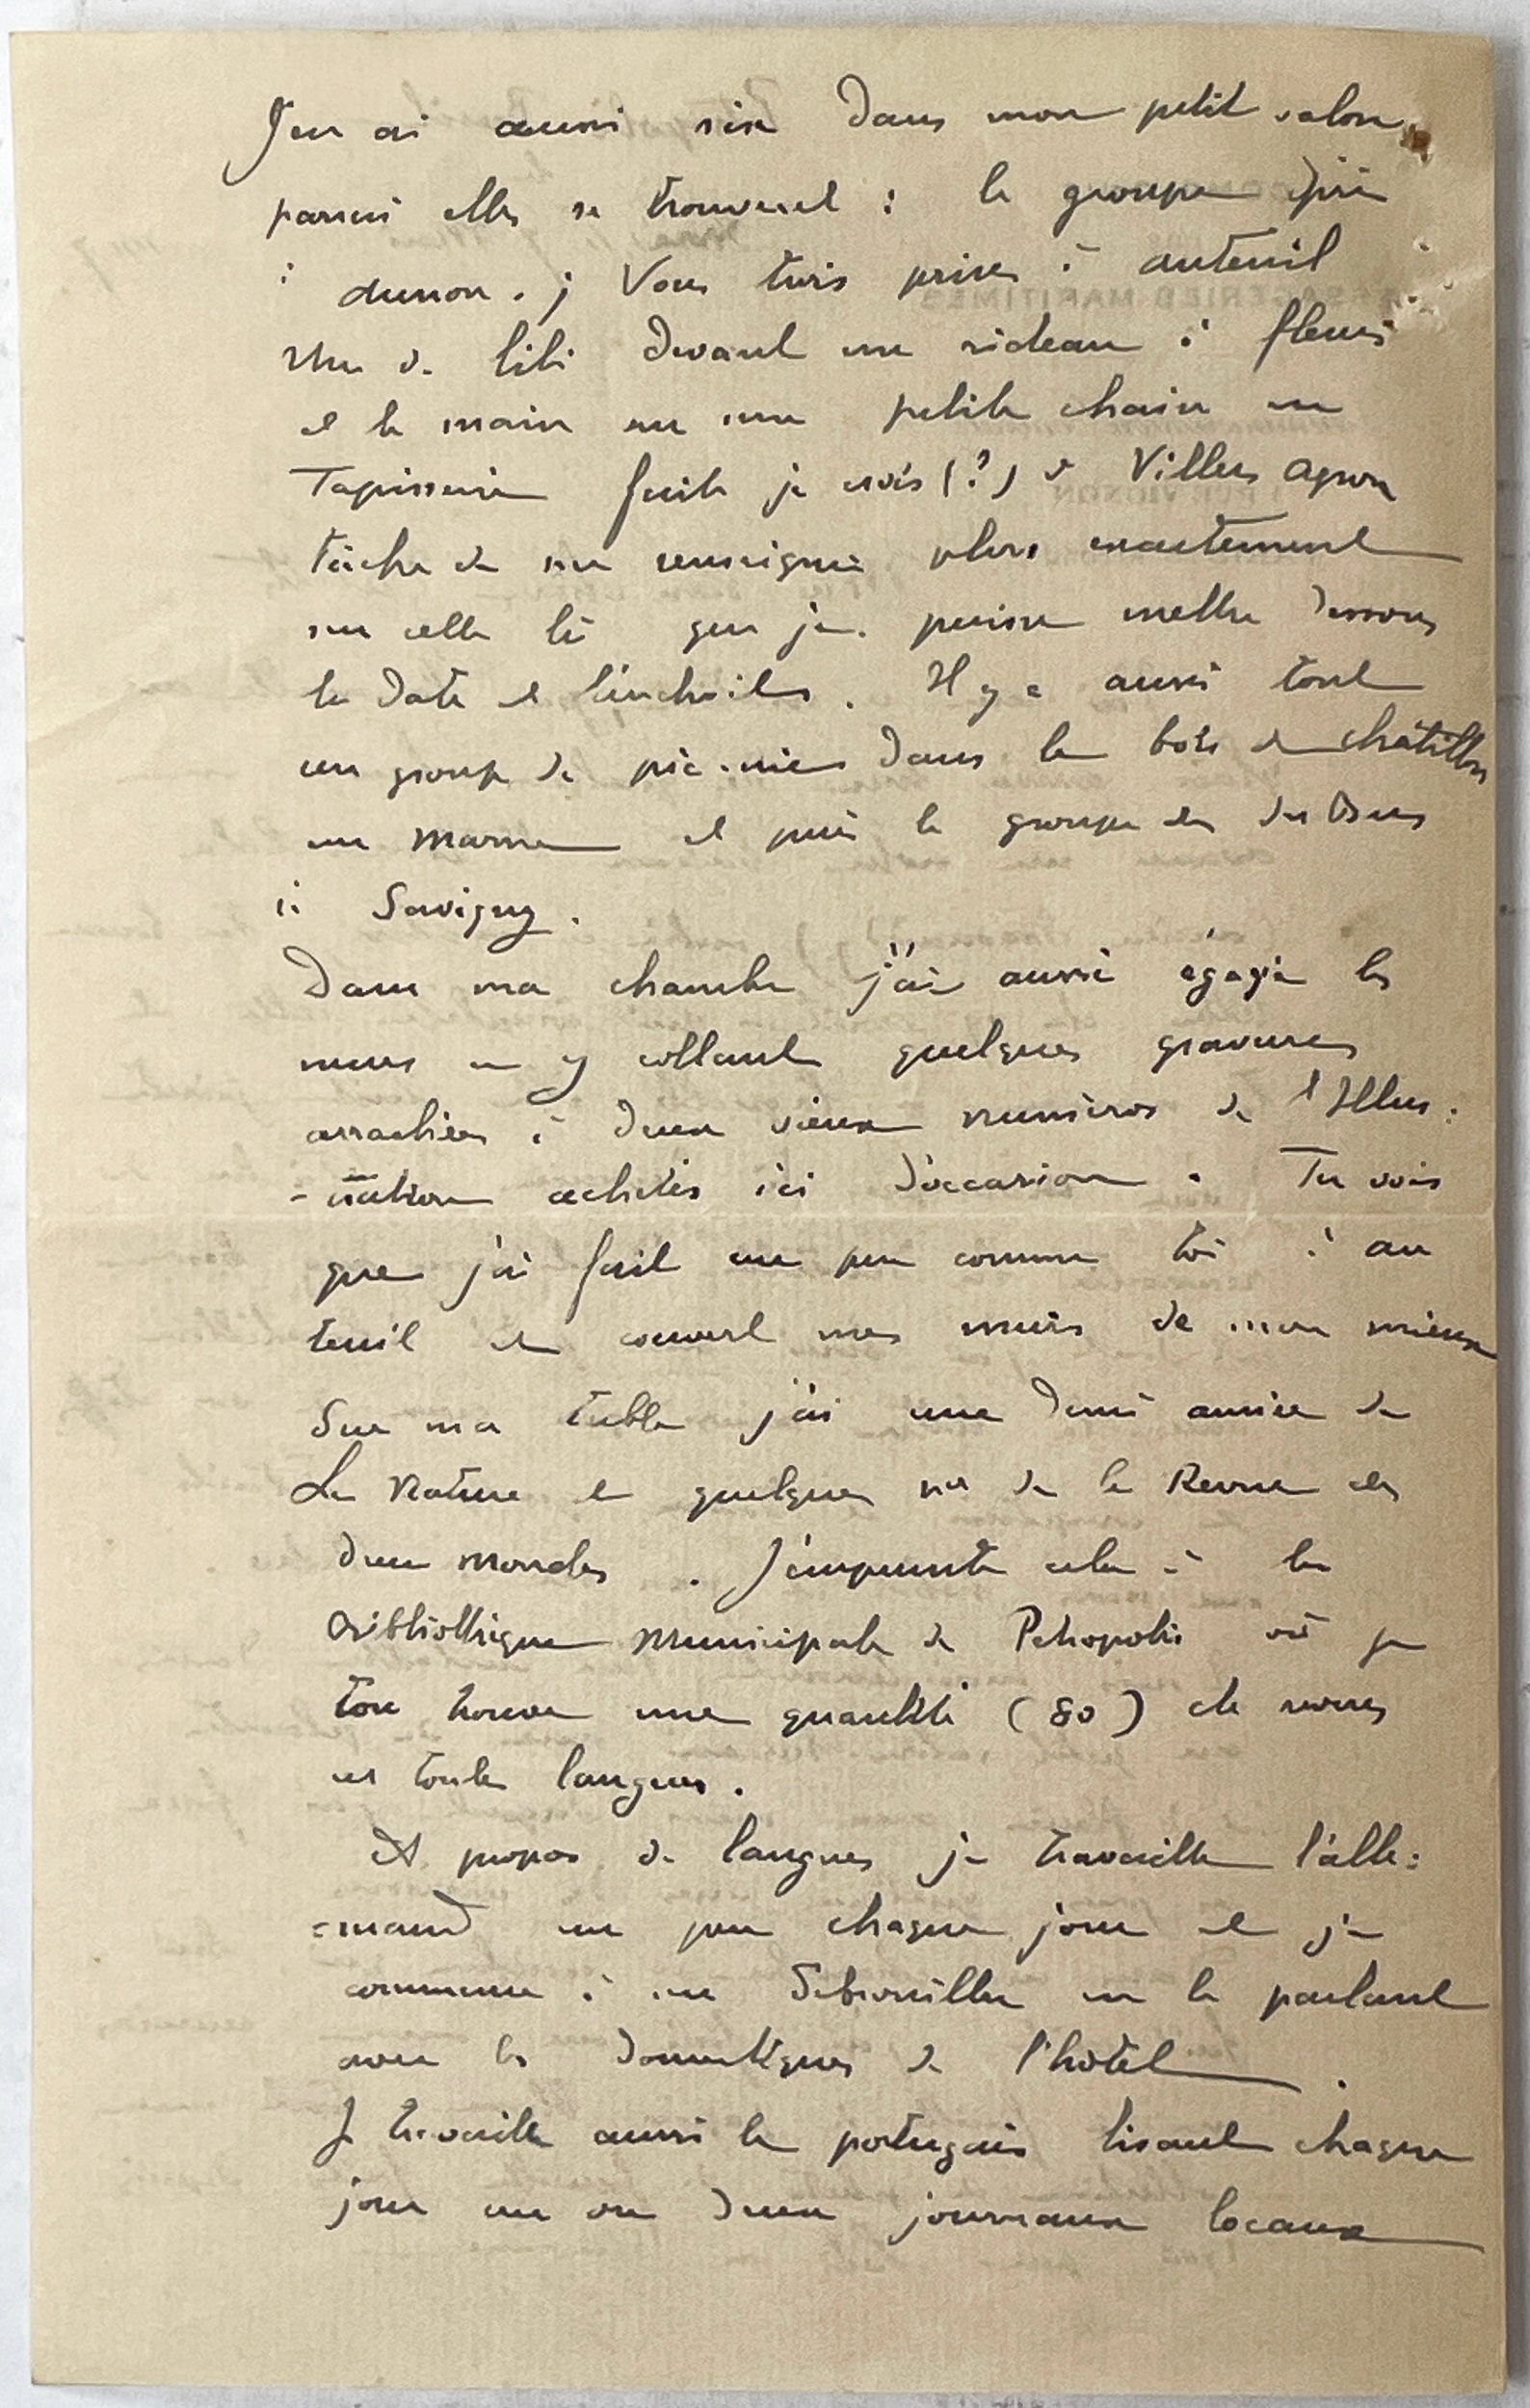 J'en ai aussi six dans mon petit salon
parmi elles se trouvent : le groupe pris
à . Vous trois prises à auteuil
une de lili devant un rideau à fleurs
et la main sur une petite chaise en
Tapisserie faite je crois (?) à Villers Agron
tâche de me renseigner plus exactement
sur celle là que je puisse mettre dessous
la date et l'endroit. Il y a aussi tout
un groupe de pic-nic dans le bois de châtillon
sur Marne et puis le groupe des
à Savigny.
Dans ma chambre j'ai aussi égayé les
murs en y collant quelques gravures
arrachées à deux vieux numéros de l'Illus:
-tration achetés ici d'occasion. Tu vois
que j'ai fait un peu comme toi à au
teuil et couvert mes murs de mon mieux
Sur ma table j'ai une demi année de
La Nature et quelques nos de la Revue des
deux Mondes. J'emprunte cela à la
Bibliothèque Municipale de Petropolis où je
ton trouve une quantité (80) de revues
en toutes langues.
A propos de langues je travaille l'alle:
=mand un peu chaque jour et je
commence à me débrouiller en le parlant
avec les domestiques de l'hôtel.
Je travaille aussi le portugais lisant chaque
jour un ou deux journaux locaux